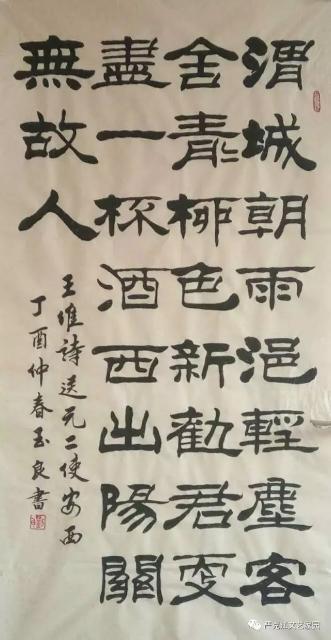 渭城朝雨浥輕塵客
舍青〻柳色新勸君更
盡一杯酒西出陽關
無故人
王維詩送元二使安西
丁酉仲春玉良書